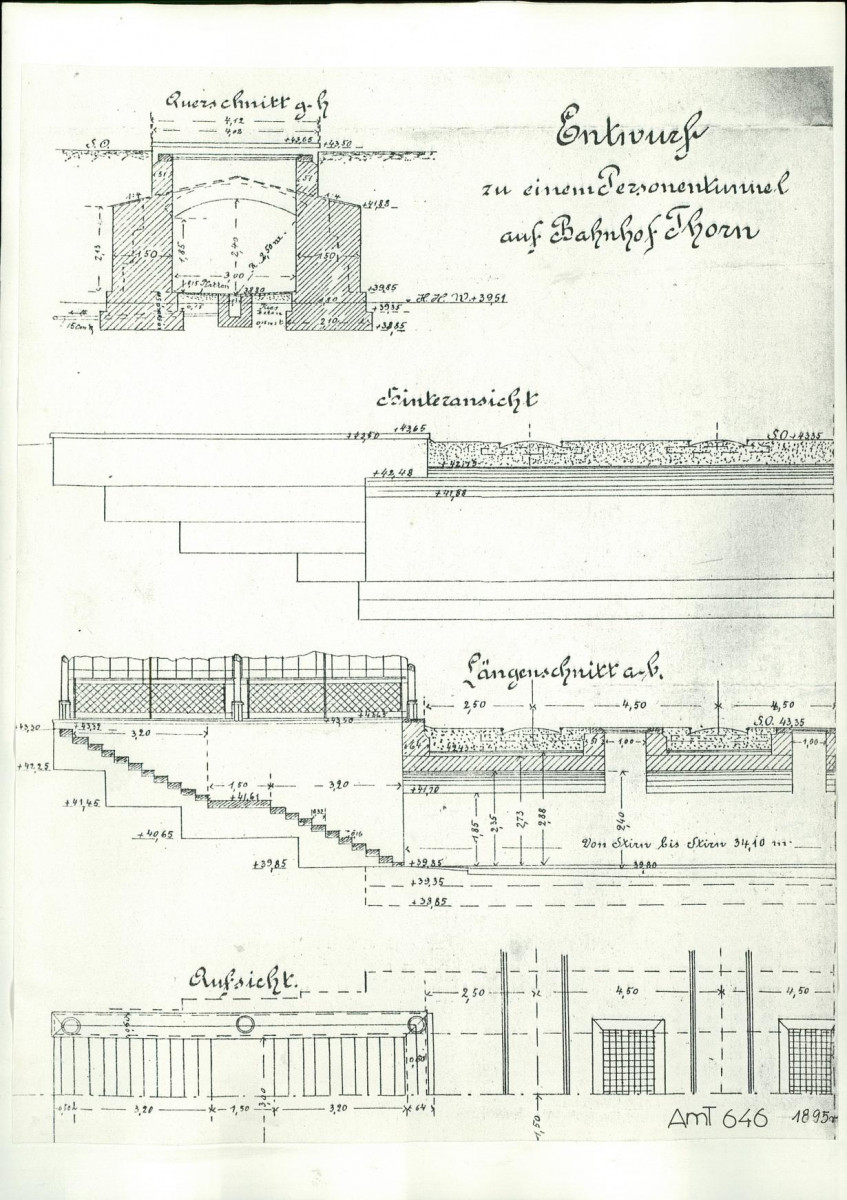 Querschnitt g-h
4,12
4,02
+43,65
+43,50
S.O.
Entwurf
zu einem Personentunnel
auf Bahnhof Thorn
51
51
1:4
1:4
+41,88
2,13
1,50
1,85
2,40
r. 2,50 m.
1,50
3,00
+39,85
H.H.W. +39,51
+39,35
2,10
Hinteransicht
+43,65
+43,50
S.O. +43,35
+42,48
+41,88
Längenschnitt a-b.
2,50
4,50
4,50
S.O. 43,35
+43,50
+43,30
+43,32
3,20
64
51
1,00
1,00
+42,25
1,50
3,20
+41,61
+41,70
+41,45
1,85
2,35
2,73
2,88
2,40
+40,65
Von Stirn bis Stirn 34,10 m.
+39,85
+39,85
39,80
+39,35
+38,85
Aufsicht.
2,50
4,50
4,50
3,00
3,20
1,50
3,20
64
1,50
AMT 646
1895r